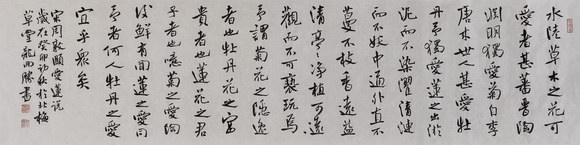 水陸草木之花可
愛者甚蕃晋陶
渊明獨愛菊自李
唐来世人甚愛牡
丹予獨愛蓮之出淤
泥而不染濯清漣
而不妖中通外直不
蔓不枝香遠益
清亭亭净植可遠
觀而不可褻玩焉
予謂菊花之隐逸
者也牡丹花之富
貴者也蓮花之君
子者也噫菊之愛陶
後鮮有聞蓮之愛同
予者何人牡丹之愛
宜乎衆矣
宋周敦頤愛蓮説
歲在癸卯初秋於北
草堂龍雨勝書